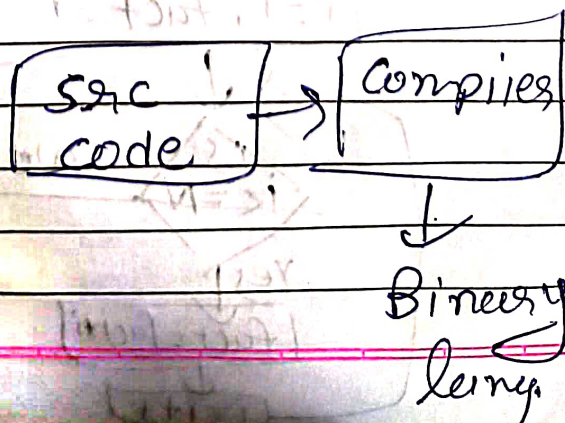 src
code
Compiler
Binary
lang.